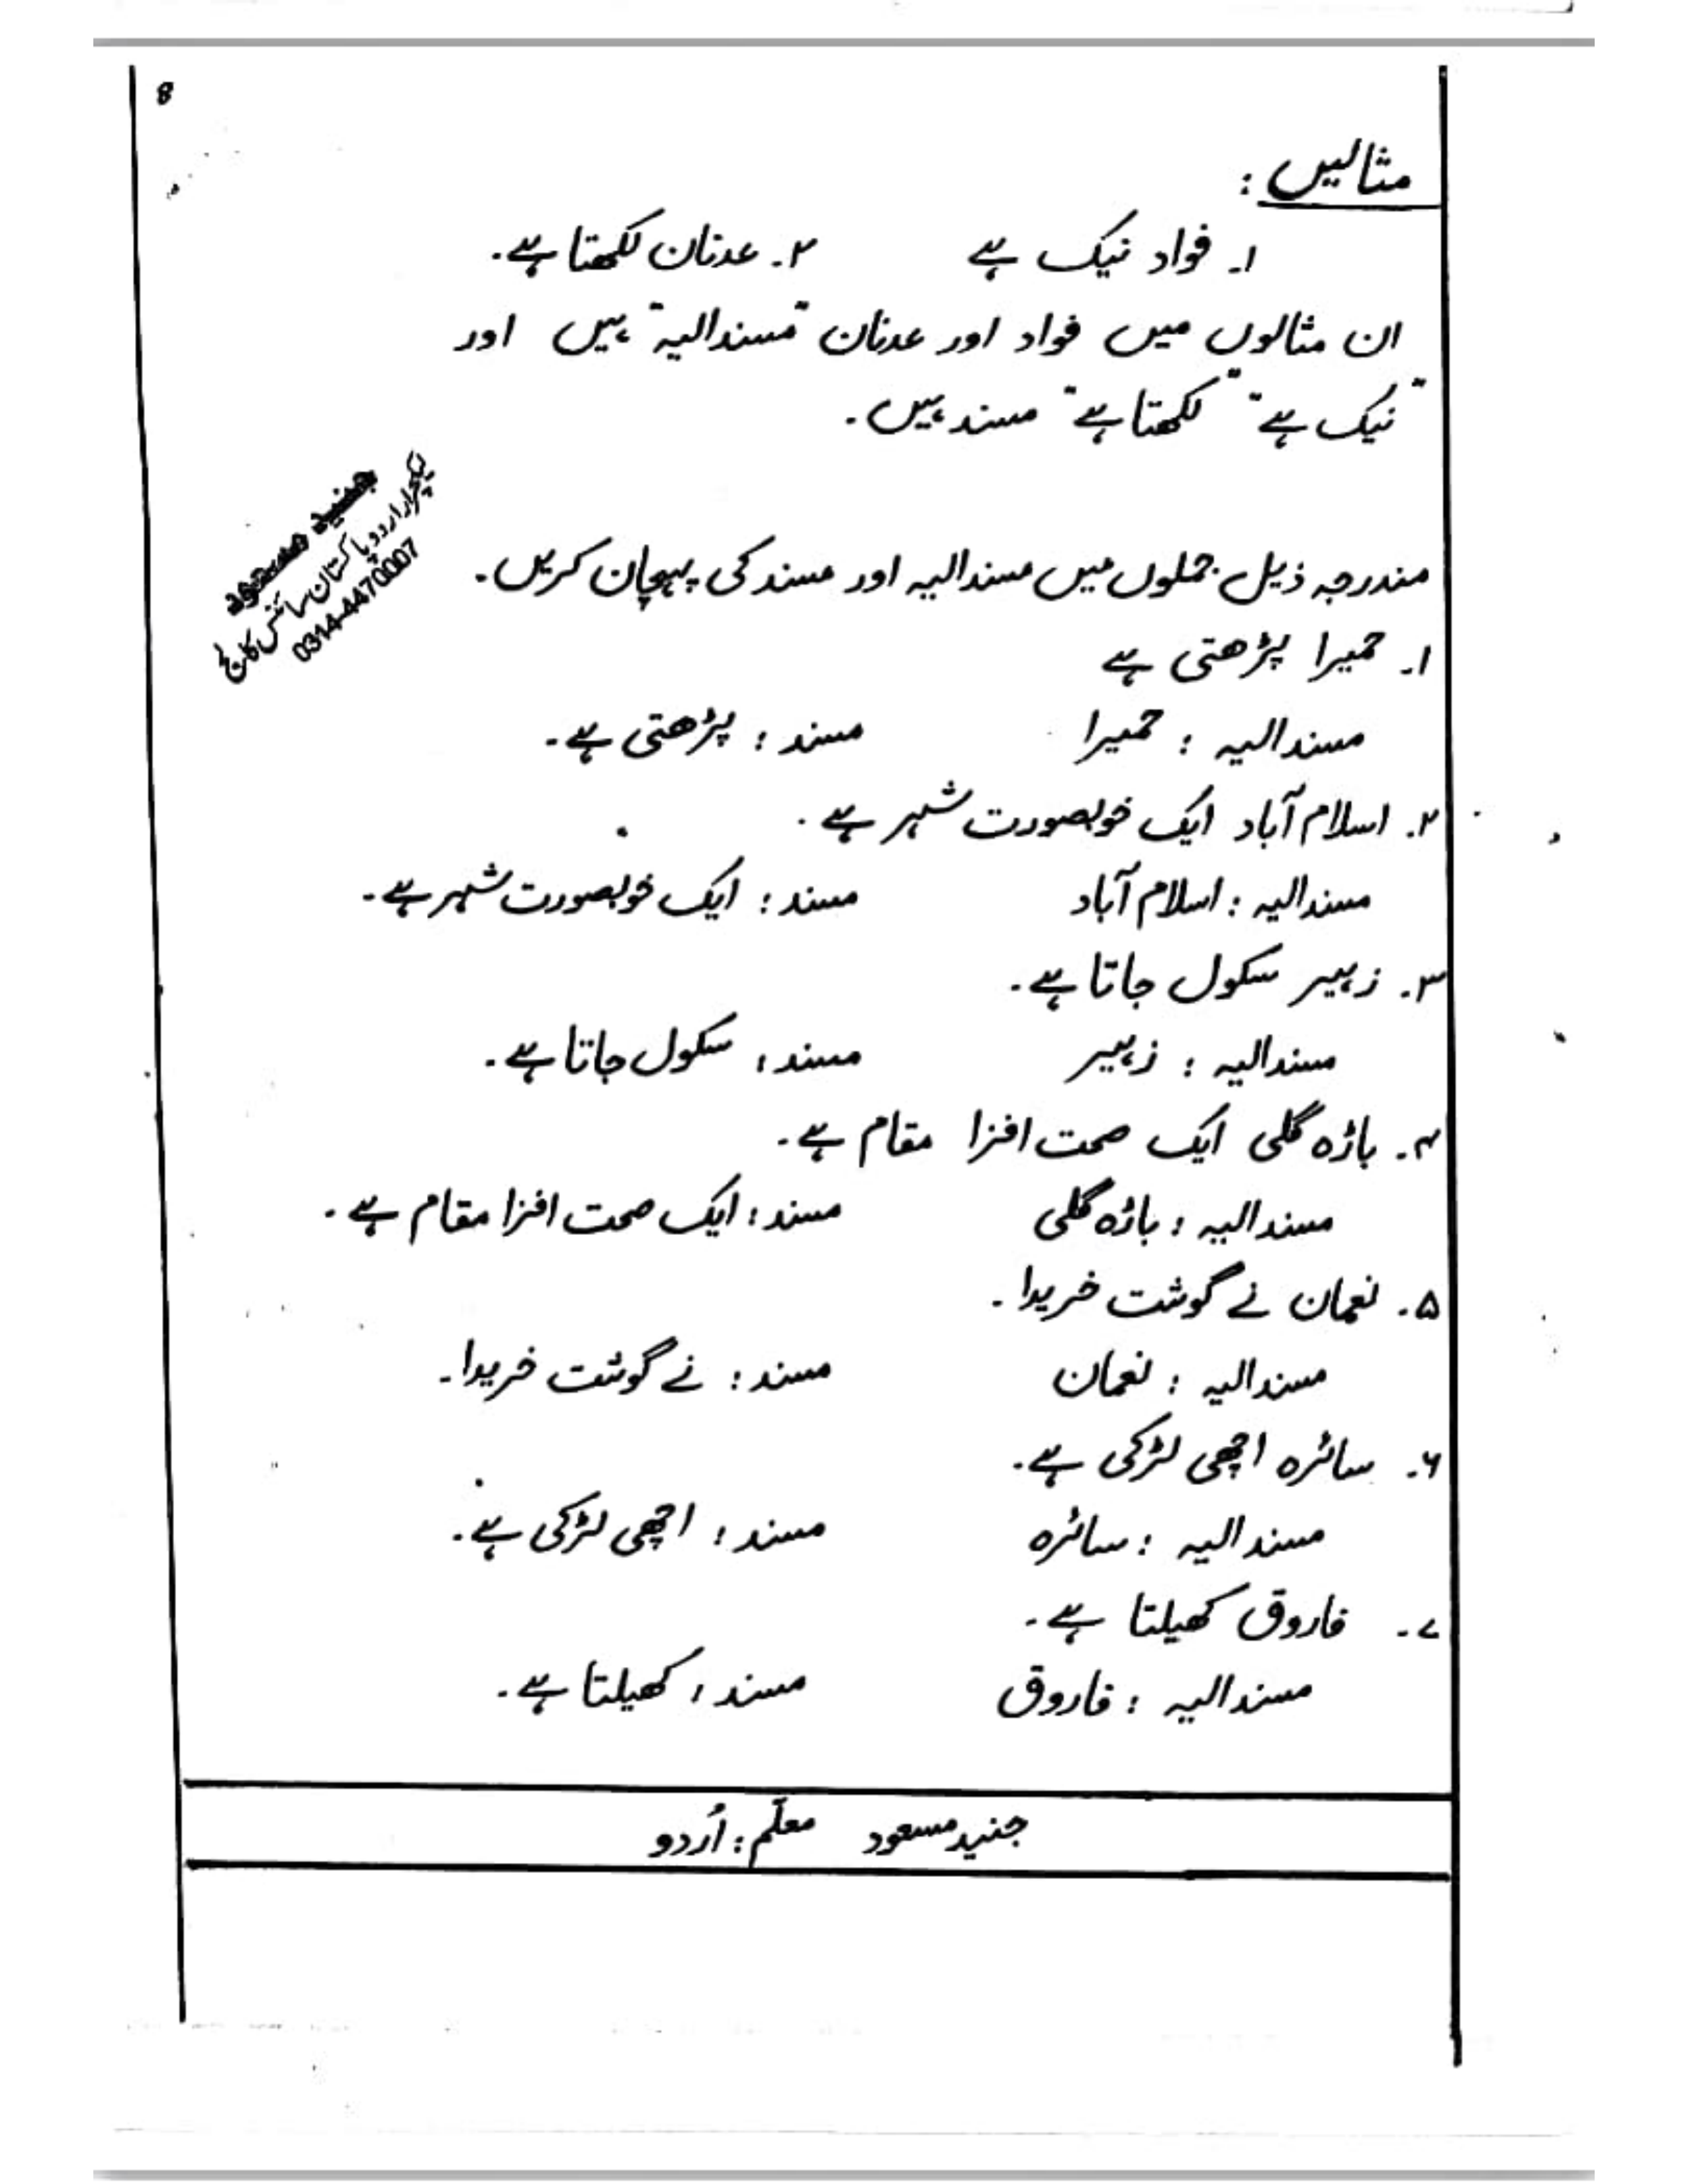 8
مثالیں :
۱۔ فواد نیک ہے ۲۔ عدنان لکھتا ہے۔
ان مثالوں میں فواد اور عدنان "مسندالیہ" ہیں اور
"نیک ہے" "لکھتا ہے" مسند ہیں۔
جنید مسعود
لیکچرار اردو پاکستان سائنس کالج
0314-4470007
مندرجہ ذیل جملوں میں مسندالیہ اور مسند کی پہچان کریں۔
۱۔ حمیرا پڑھتی ہے
مسندالیہ : حمیرا مسند : پڑھتی ہے۔
۲۔ اسلام آباد ایک خوبصورت شہر ہے۔
مسندالیہ : اسلام آباد مسند : ایک خوبصورت شہر ہے۔
۳۔ زبیر سکول جاتا ہے۔
مسندالیہ : زبیر مسند : سکول جاتا ہے۔
۴۔ باڑہ گلی ایک صحت افزا مقام ہے۔
مسندالیہ : باڑہ گلی مسند : ایک صحت افزا مقام ہے۔
۵۔ نعمان نے گوشت خریدا۔
مسندالیہ : نعمان مسند : نے گوشت خریدا۔
۶۔ سائرہ اچھی لڑکی ہے۔
مسندالیہ : سائرہ مسند : اچھی لڑکی ہے۔
۷۔ فاروق کھیلتا ہے۔
مسندالیہ : فاروق مسند : کھیلتا ہے۔
جنید مسعود معلّم : اُردو